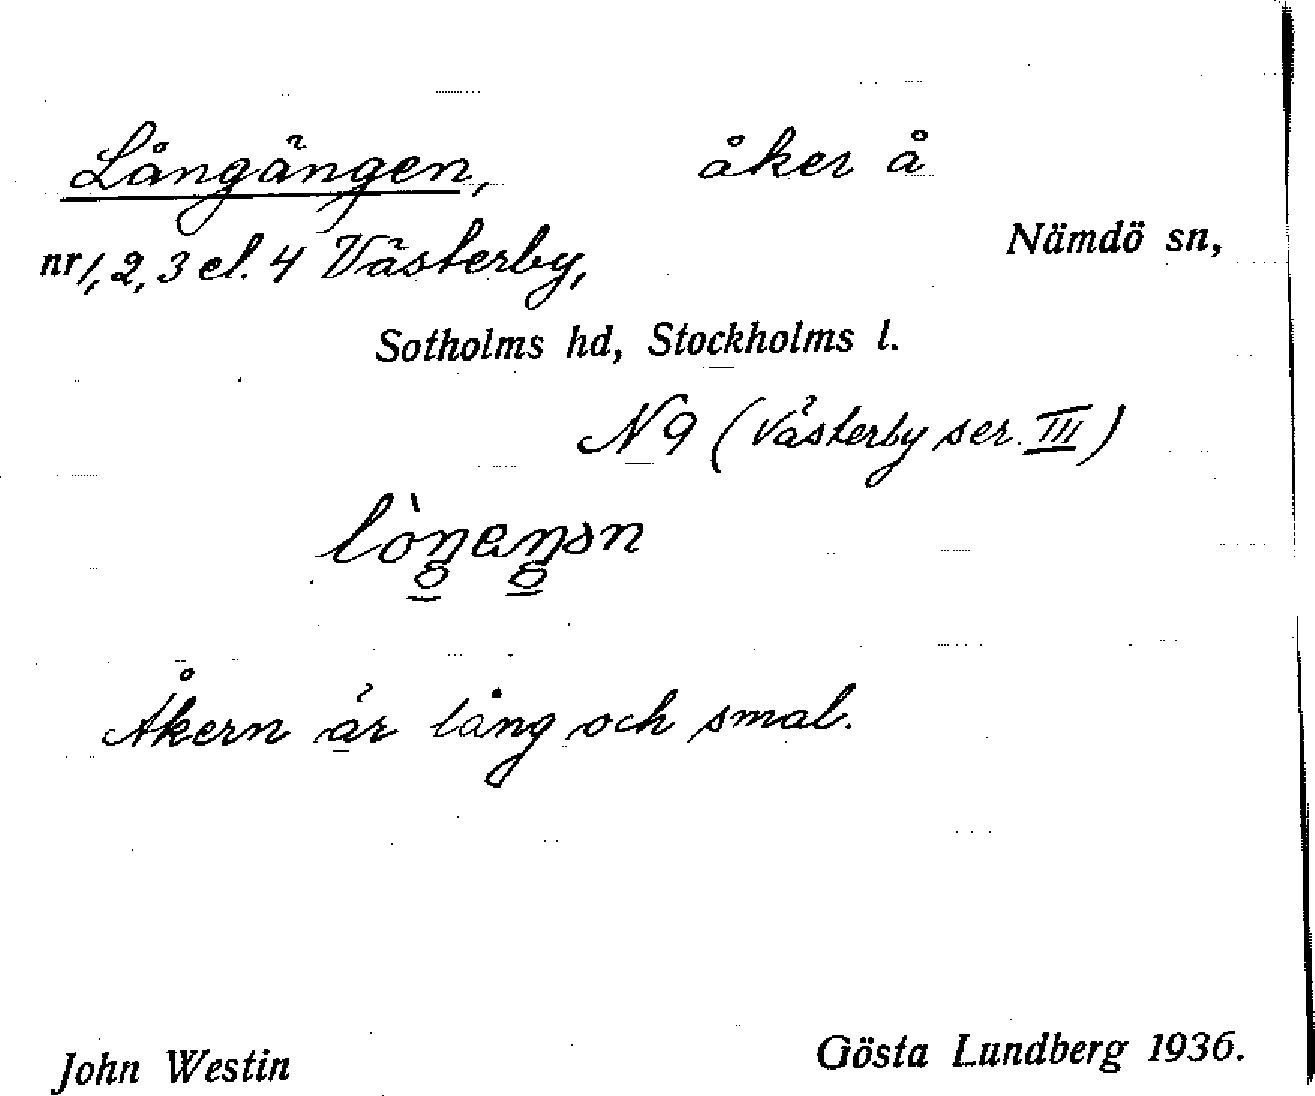 Långängen, åker å
Nämdö sn,
nr 1, 2, 3 el. 4 Västerby,
Sotholms hd, Stockholms l.
N 9 (Västerby ser. III)
Åkern är lång och smal.
John Westin Gösta Lundberg 1936.